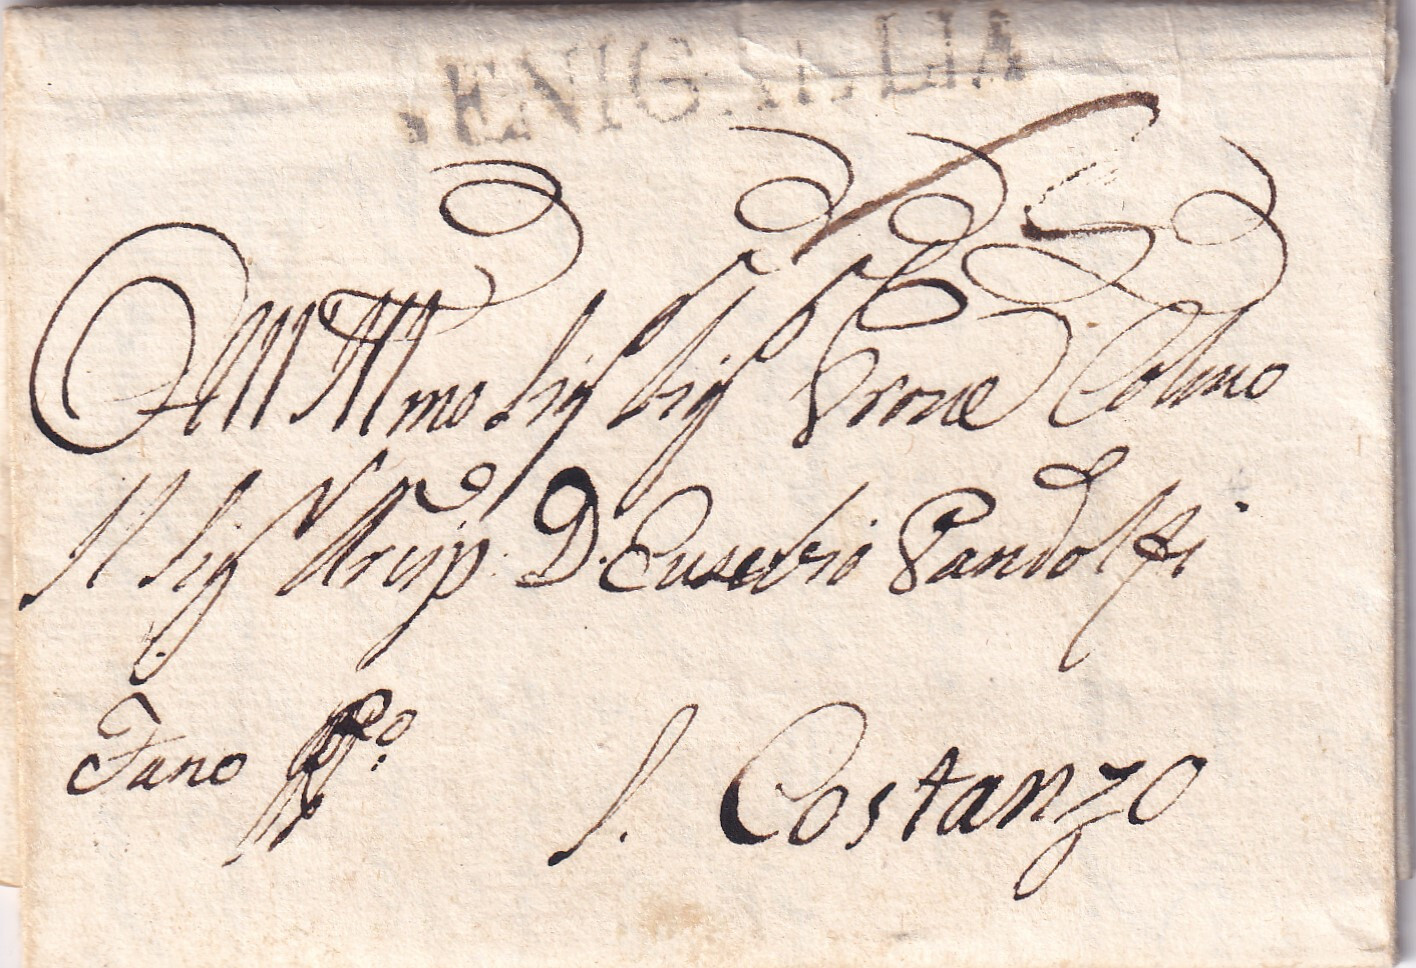 SENIGALLIA
All Illmo Sig Sig Prone Colmo
Il Sig Arcip. D. Eusebio Pandolfi
Fano
S. Costanzo